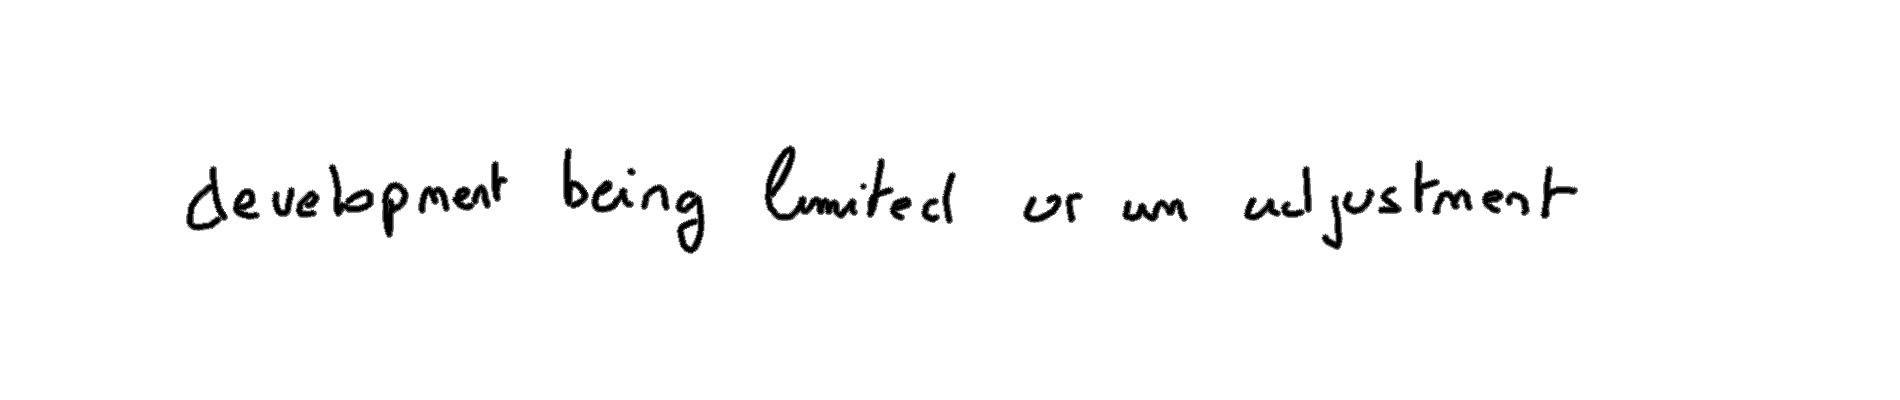 development being limited or an adjustment